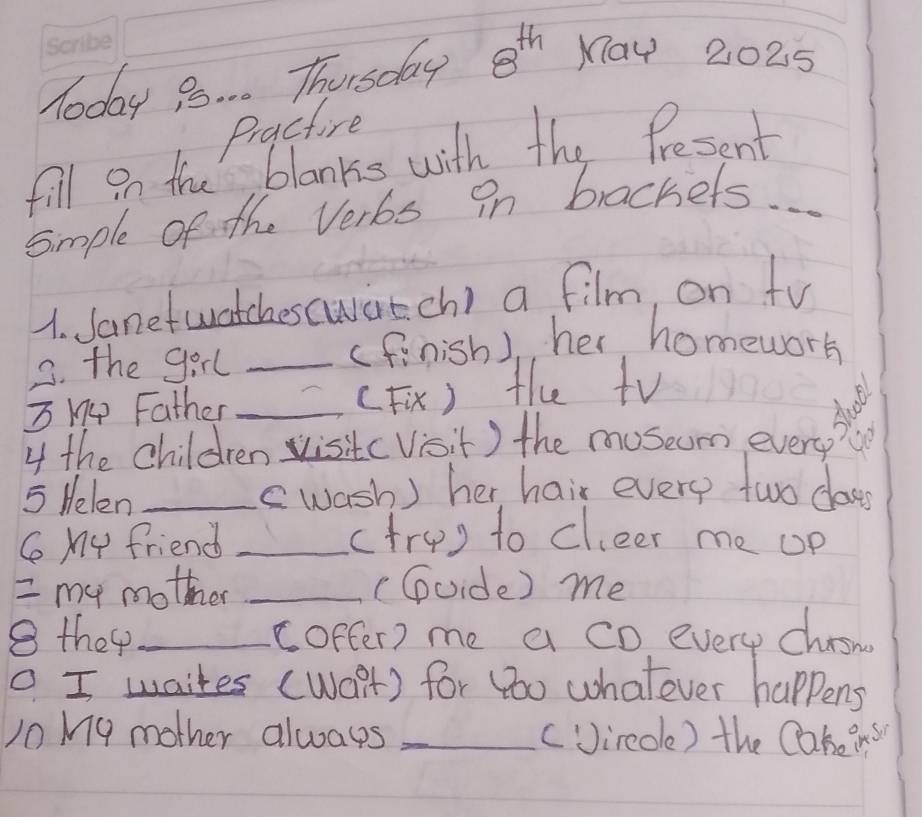 Scribe
Today is... Thursday 8th May 2025
Practire
fill in the blanks with the Present
simple of the Verbs in brackets...
1. Janet watches (watch) a film, on tv
2. the girl ____ (finish), her homework
3 My Father ____ (Fix) the tv
4 the children visit (Visit) the museum every
5 Helen ____ (wash) her hair every two days
6 My friend ____ (try) to cheer me up
7 my mother ____ (Guide) me
8 they ____ (offer) me a CD every
9. I waites (wait) for you whatever happens
10 My mother always ____ the Cake in